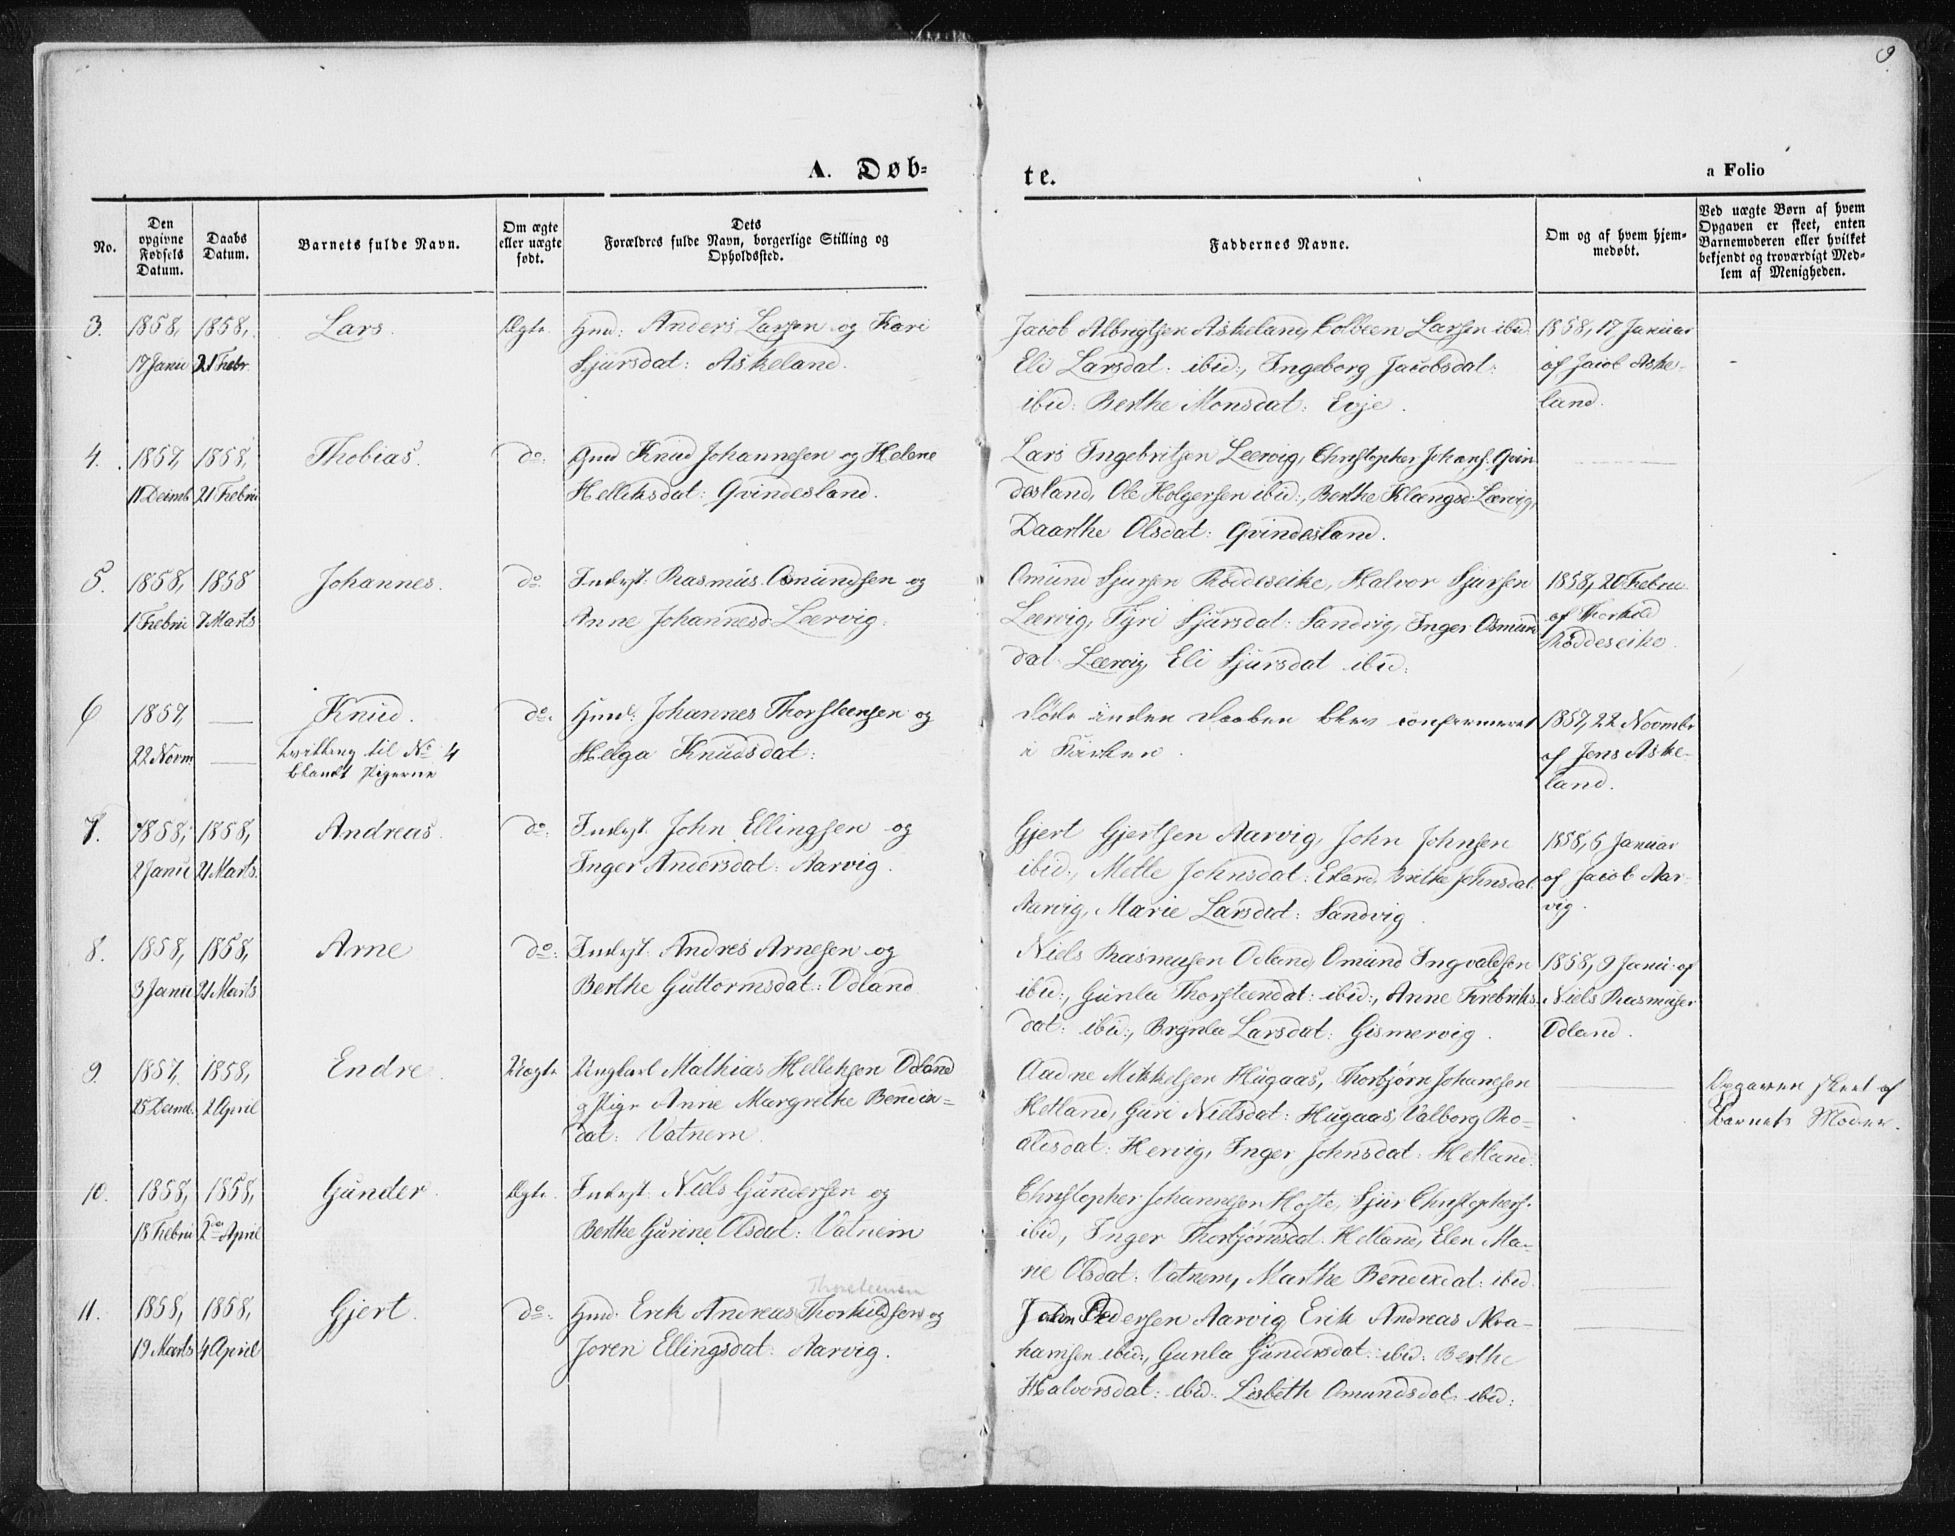 9
A. Døb-
te.
a Folio
No.
Den opgivne Fødsels Datum.
Daabs Datum.
Barnets fulde Navn.
Om ægte eller uægte født.
Dets Forældres fulde Navn, borgerlige Stilling og Opholdssted.
Faddernes Navne.
Om og af hvem hjemmedøbt.
Ved uægte Børn af hvem Opgaven er skeet, enten Barnemoderen eller hvilket bekjendt og troværdigt Medlem af Menigheden.
3. 1858, 1858, Lars. Ægte. Gmd: Anders Larsen og Kari
17 Janu 21 Febr. Sjursdat: Askeland.
Jacob Albrigtsen Askeland, Colbeen Larsen ibid.
Eli Larsdat: ibid:, Ingeborg Jacobsdat:
ibid: Berthe Monsdat: Evje.
1858, 17 Januar
af Jacob Aske-
land.
4. 1857, 1858, Thobias. do: Gmd Knud Johannesen og Helene
11 Decmb 21 Febru Helliksdat: Qvindesland.
Lars Ingebritsen Leervig, Christopher Johans: Qvin
desland, Ole Holgersen ibid:, Berthe Klængsd: Leervig,
Daarthe Olsdat: Qvindesland.
5. 1858, 1858 Johannes. do. Inderst: Rasmus Osmundsen og
1 Febru 7 Marts Anne Johannesd Leervig.
Omund Sjursen Røddeseike, Halvor Sjursen
Leervig, Syri Sjursdat: Sandvig, Inger Osmun
dat Leervig, Eli Sjursdat ibid:
1858, 20 Febru
af Thorkild
Røddeseike.
6 1857, Knud. do. Gmd: Johannes Thorsteensen og
22 Novm Tvilling til No 4 Helga Knudsdat:
blandt Pigerne
Døde inden Daaben blev confirmeret
i Kirken.
1857, 22 Novmbr
af Jens Aske-
land.
7. 1858, 1858, Andreas. do: Inderst. John Ellingsen og
2 Janu 21 Marts. Inger Andersdat: Aarvig.
Gjert Gjertsen Aarvig, John Johnsen
ibid:, Metle Johnsdat: Eiland, Berthe Johnsdat
Aarvig, Marie Larsdat: Sandvig.
1858, 5 Januar
af Jacob Aar-
vig.
8. 1858, 1858, Arne do: Inderst: Andres Arnesen og
3 Janu 21 Marts Berthe Guttormsdat: Odland
Niels Rasmusen Odland, Omund Ingvaldsen
ibid:, Gunla Thorsteendat: ibid:, Anne Fredriks
dat: ibid:, Brynla Larsdat: Gismervig.
1858, 9 Janu: af
Niels Rasmusen
Odland.
9. 1857, 1858, Endre. Uægte Ungkarl Mathias Helliksen Odland
25 Decmb. 2 April og Pige Anne Margrethe Bendix-
dat: Vatnem.
Aadne Mikkelsen Hugaas, Thorbjørn Johansen
Hetland, Guri Nielsdat: Hugaas, Valborg Tho-
dat: Hervig, Inger Johnsdat: Hetland.
Opgaven skeet af
Barnets Moder.
10. 1858, 1858, Gunder. Ægte. Inderst: Niels Gundersen og
18 Febru 2den April Berthe Gurine Olsdat: Vatnem
Christopher Johannesen Hofte, Sjur Christophers.
ibid, Inger Thorbjørnsdat: Hetland, Elen Ma-
rie Olsdat: Vatnem, Marthe Bendixdat: ibid.
Thorsteensen
11. 1858, 1858, Gjert. do: Gmd: Erik Andreas Thorkildsen og
19 Marts 4 April Joren Ellingsdat: Aarvig.
John Pedersen Aarvig Erik Andreas Abra-
hamsen ibid:, Gunla Gundersdat: ibid: Berthe
Halvorsdat: ibid: Lisbeth Omundsdat: ibid: